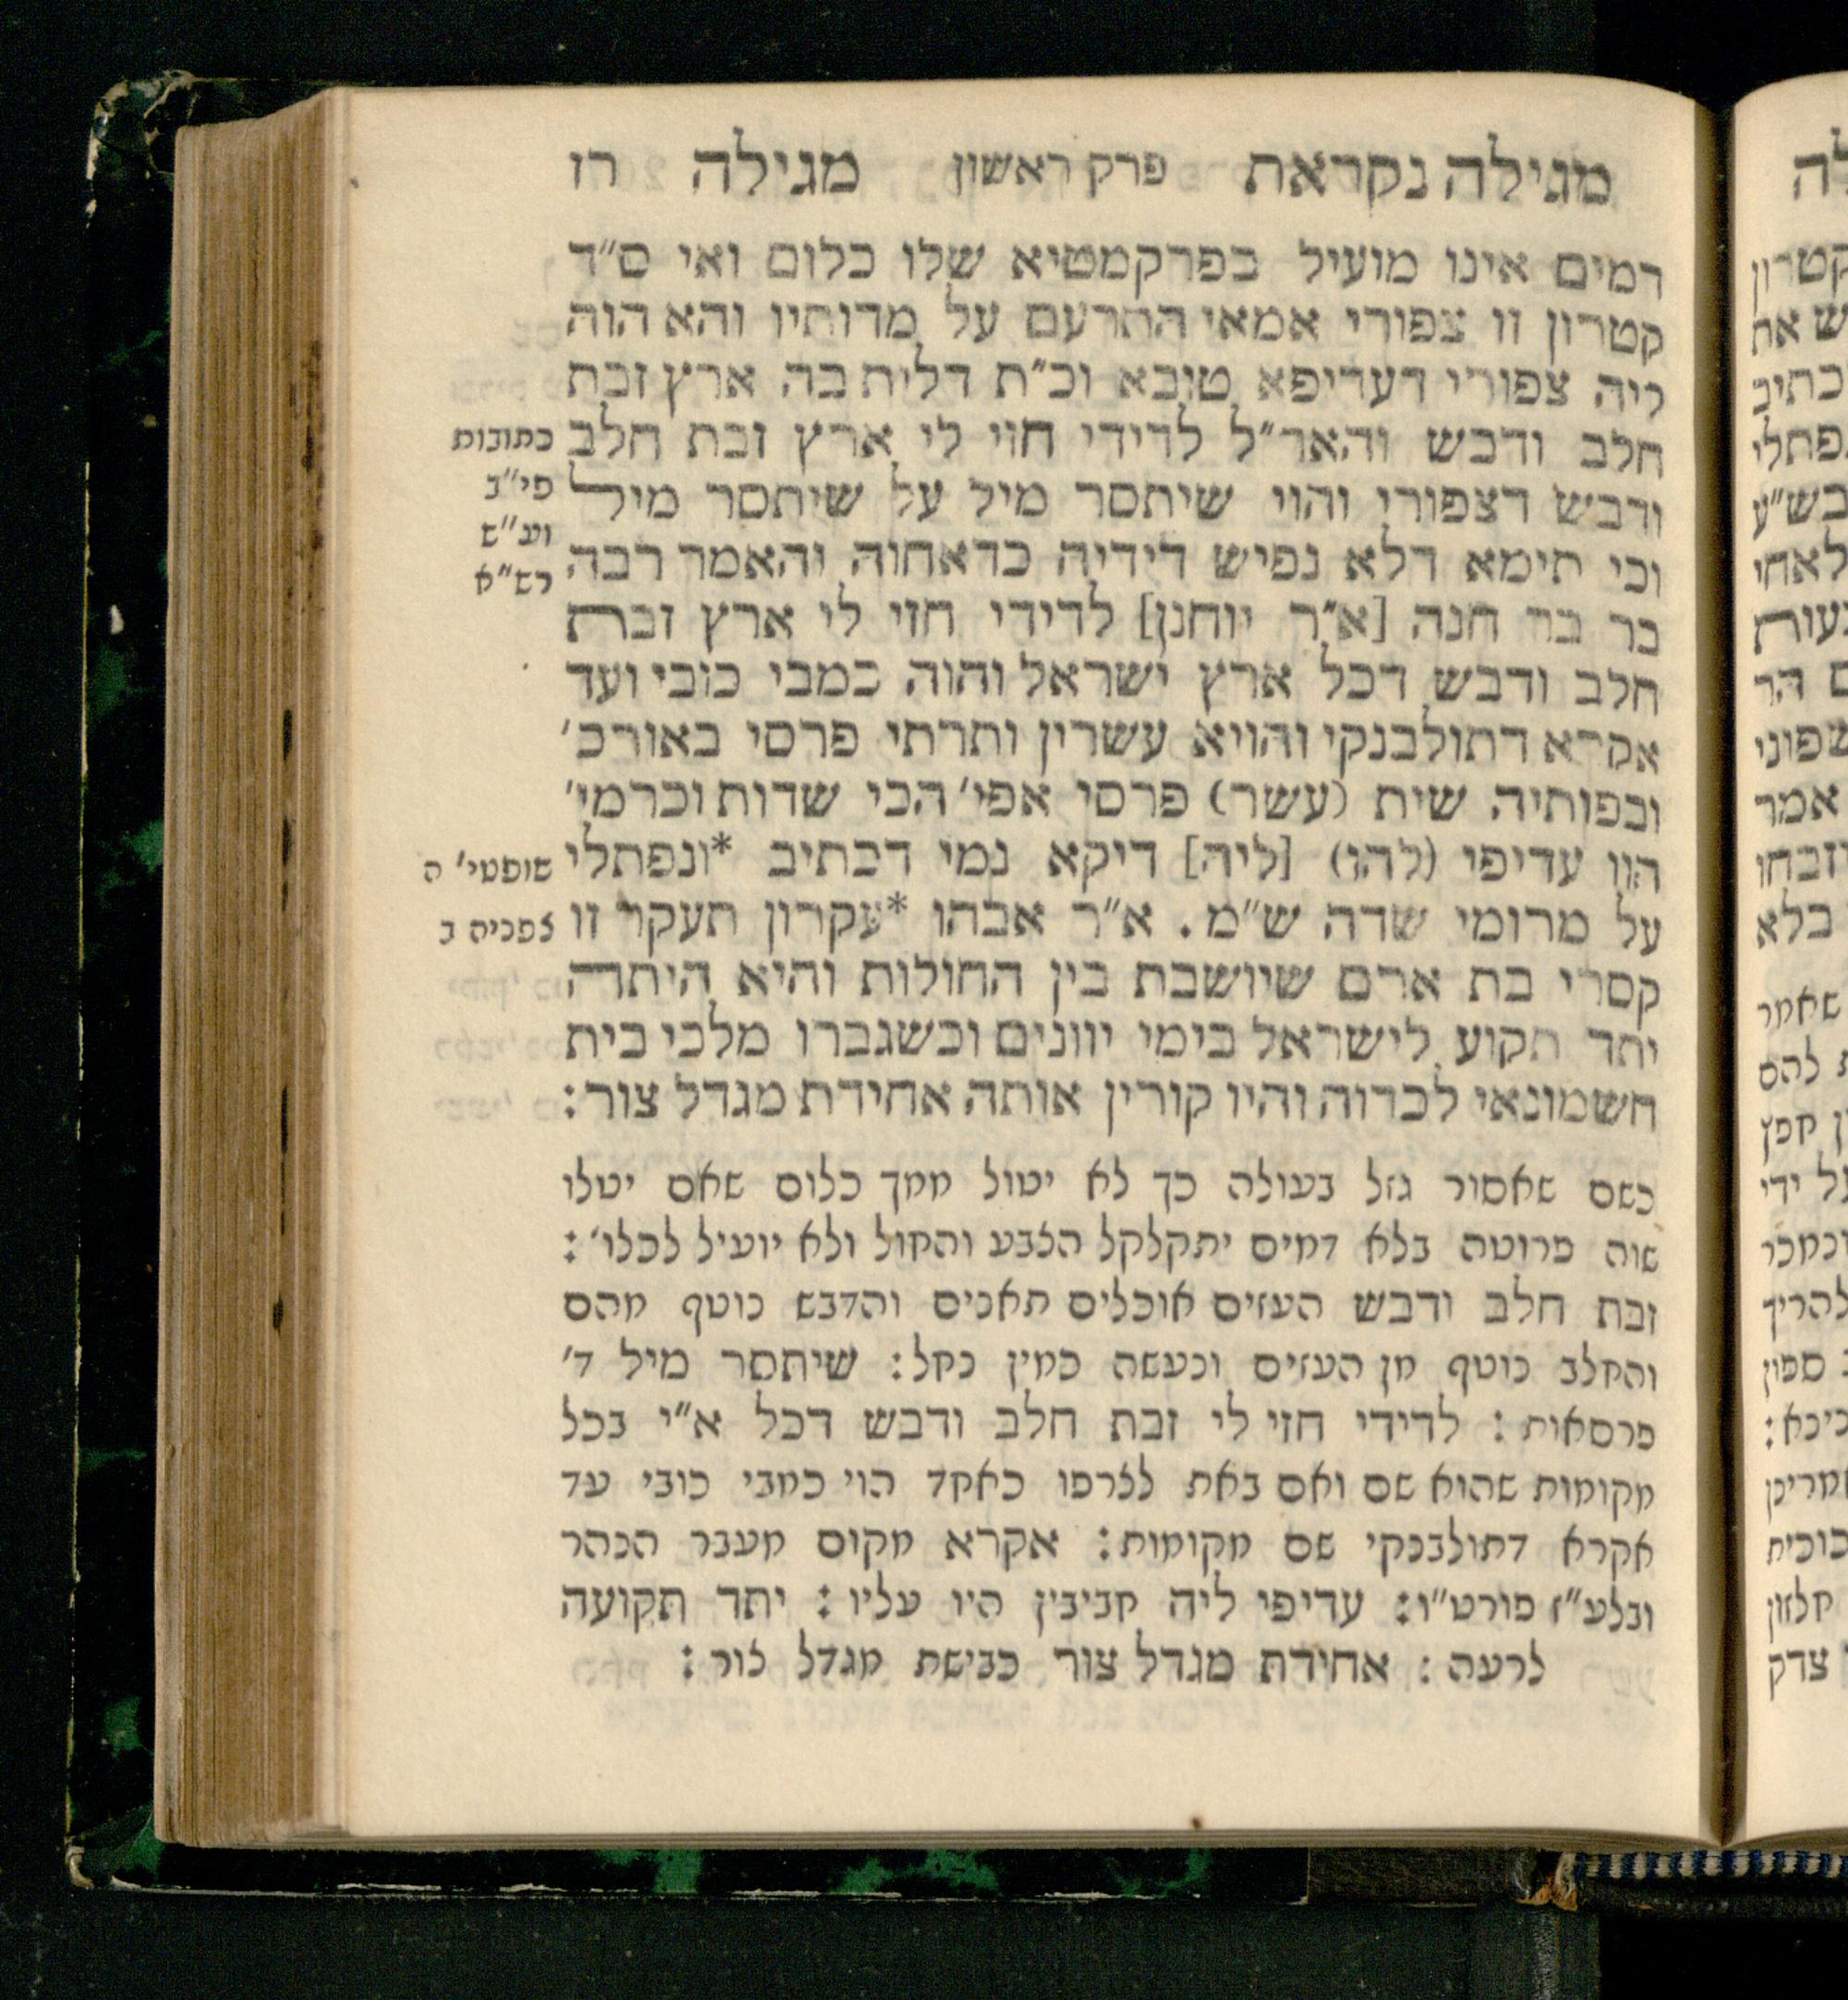 מגילה נקראת פרק ראשון מגילה רז
דמים אינו מועיל בפרקמטיא שלו כלום ואי ס״ד
קטרון זו צפורי אמאי התרעם על מדותיו והא הוה
ליה צפורי דעדיפא טובא וכ״ת דלית בה ארץ זבת
חלב ודבש והאר״ל לדידי חזי לי ארץ זבת חלב
ודבש דצפורי והוי שיתסר מיל על שיתסר מיל
וכי תימא דלא נפיש דידיה כדאחוה והאמר רבה
בר בר חנה [א״ר יוחנן] לדידי חזי לי ארץ זבת
חלב ודבש דכל ארץ ישראל והוה כמבי כובי ועד
אקרא דתולבנקי והויא עשרין ותרתי פרסי באורכ׳
ובפותיה שית (עשר) פרסי אפי׳ הכי שדות וכרמי׳
הוו עדיפי (להו) [ליה] דיקא נמי דכתיב *ונפתלי
על מרומי שדה ש״מ. א״ר אבהו *עקרון תעקר זו
קסרי בת ארם שיושבת בין החולות והיא היתה
יתד תקוע לישראל בימי יוונים וכשגברו מלכי בית
חשמונאי לכדוה והיו קורין אותה אחידת מגדל צור:
כתובות
פי״ב
וע״ש
רש״א
שופטי׳ ה
צפניה ב
כשם שאסור גזל בעולה כך לא יטול ממך כלום שאם יטלו
שוה פרוטה בלא דמים יתקלקל הצבע והחול ולא יועיל לכלו׳:
זבת חלב ודבש העזים אוכלים תאנים והדבש נוטף מהם
והחלב נוטף מן העזים ונעשה כמין נחל: שיתסר מיל ד׳
פרסאות: לדידי חזי לי זבת חלב ודבש דכל א״י בכל
מקומות שהוא שם ואם באת לצרפו כאחד הוי כמבי כובי עד
אקרא דתולבנקי שם מקומות: אקרא מקום מעבר הנהר
ובלע״ז פורט״ו: עדיפי ליה חביבין היו עליו: יתד תקועה
לרעה: אחידת מגדל צור כבישת מגדל צור:
קטרון
ש את
כתיב
נפתלי
בש״ע
לאחי
ם הר
שפוני
אמר
וזבחו
בלא
שאמר
ת להם
ן חפץ
על ידי
ספון
צדק